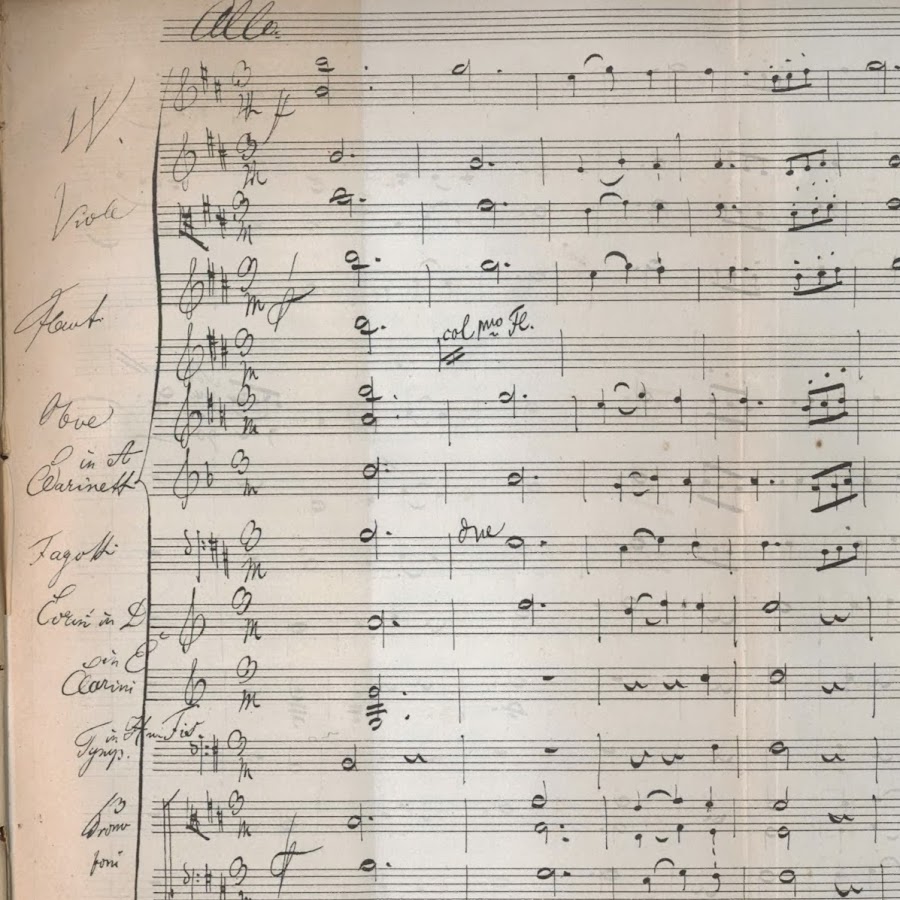 Allo.
W.
Viole
Flauti
col pmo Fl.
Oboe
in A
Clarinetti
due
Fagotti
Corni in D
in E
Clarini
in H un Fis.
Tymp.
3
Trom
boni